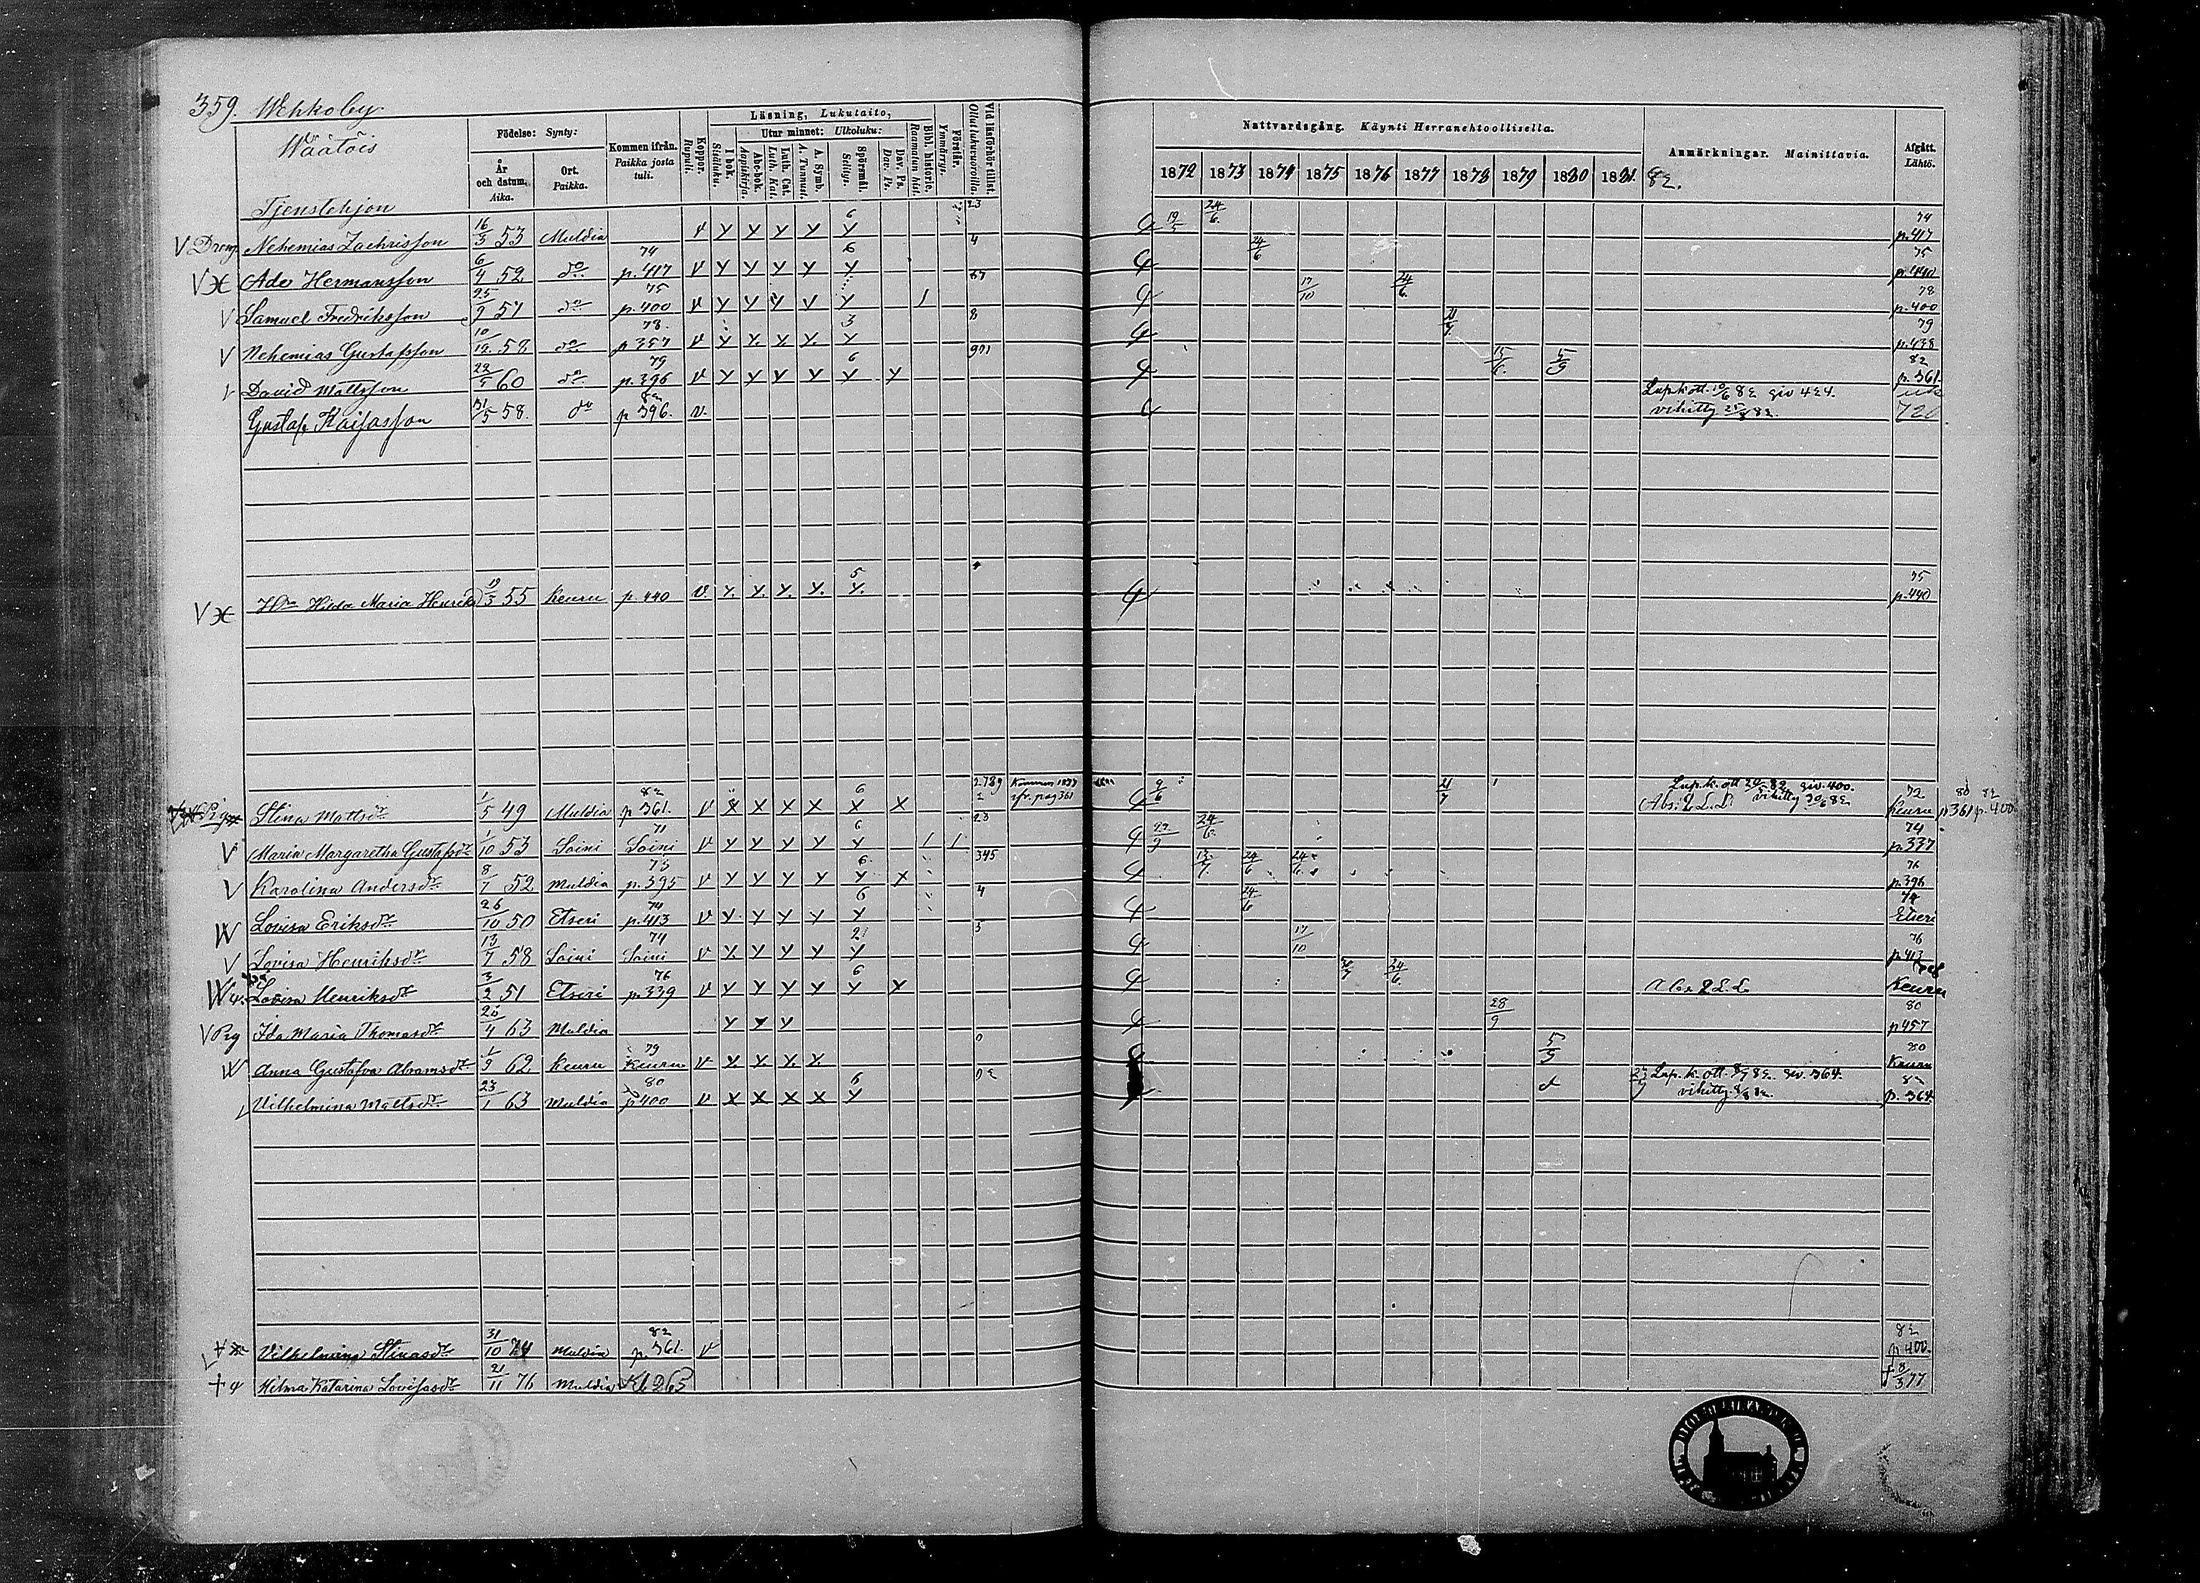 359. Wehkoby
Wäätöis
Födelse: Synty:
År och datum. Aika.
Ort. Paikka.
Kommen ifrån. Paikka josta tuli.
Koppor. Rupuli.
Läsning, Lukutaito,
I bok. Sisäluku.
Utur minnet: Ulkoluku:
Abc-bok. Aapiskirja.
Luth. Cat. Luth. Kat.
A. Symb. A. Tunnust.
Spörsmål Selitys.
Dav. Ps. Dav. Ps.
Bibl. historie. Raamatun hist.
Förstår. Ymmärrys.
Vid läsförhör. tillst. Ollut lukuvuoroilla.
Nattvardsgång. Käynti Herranehtoollisella.
1872 1873 1874 1875 1876 1877 1878 1879 1880 1881. 82.
Anmärkningar. Mainittavia.
Afgått. Lähtö.
Tjenstehjon
Dreng Nehemias Zachrisson 16/3 53 Muldia 6 23 19/5 24/6 74 p.417
Ade Hermansson 6/4 52 do 74 p.417 6 4 24/6 75 p.440
Samuel Fredriksson 25/9 57 do 75 p.400 87 17/10 24/6 78 p.400
Nehemias Gustafsson 10/12 58 do 78. p 357 3 8 21/7 79 p.438
David Mattsson 22/5 60 do 79 p.396 6 901 15/6 5/9 82 p.361.
Gustaf Kaisasson 31/5 58. do 82 p 396. Lup.k.ott. 10/6 82 siv 424. vihitty 25/8 82.
Hu Hilda Maria Henriksd 19/3 55 Keuru p.440 5 75 p.440
Pig Stina Mattsdr 1/5 49 Muldia 82 p 361. 6 2789 2 9/6 21/7 Lup.k.ott 24/5 82 siv. 400. vihitty 30/6 82 72 Keuru 80 82 p 361 p. 400
Maria Margaretha Gustafsdr 1/10 53 Soini 71 Soini 6 23 22/9 24/6 74 p.337
Karolina Andersdr 8/7 52 Muldia 73 p.395 6 345 13/7 24/6 24/6 76 p.396
Lovisa Eriksdr 26/10 50 Etseri 74 p.413 6 4 24/6 74 Etseri
Lovisa Henriksdr 13/7 58 Soini 74 Soini 2 5 17/10 76 p.413
Lovisa Henriksdr 3/2 51 Etseri 76 p.339 6 24/6 Keuru
Pig Ida Maria Thomasdr 26/4 63 Muldia 28/9 80 p457
Anna Gustafva Abramsdr 1/9 62 Keuru 79 Keuru 0 5/9 80 Keuru
Vilhelmina Mattsdr 23/1 63 Muldia 80 p400 6 Lup.k.ott. siv. 364. vihitty 82 p. 364
Vilhelmina Stinasdr 31/10 74 Muldia 82 p.361. 82 p 400.
Hilma Katarina Lovisasdr 21/11 76 Muldia † 8/3 77